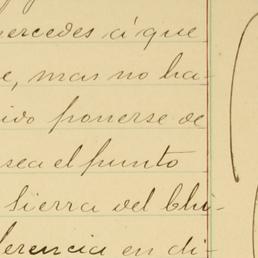 mercedes á que
e, mas no ha-
ido ponerse de
sea el punto
Sierra del Chi-
ferencia en di-